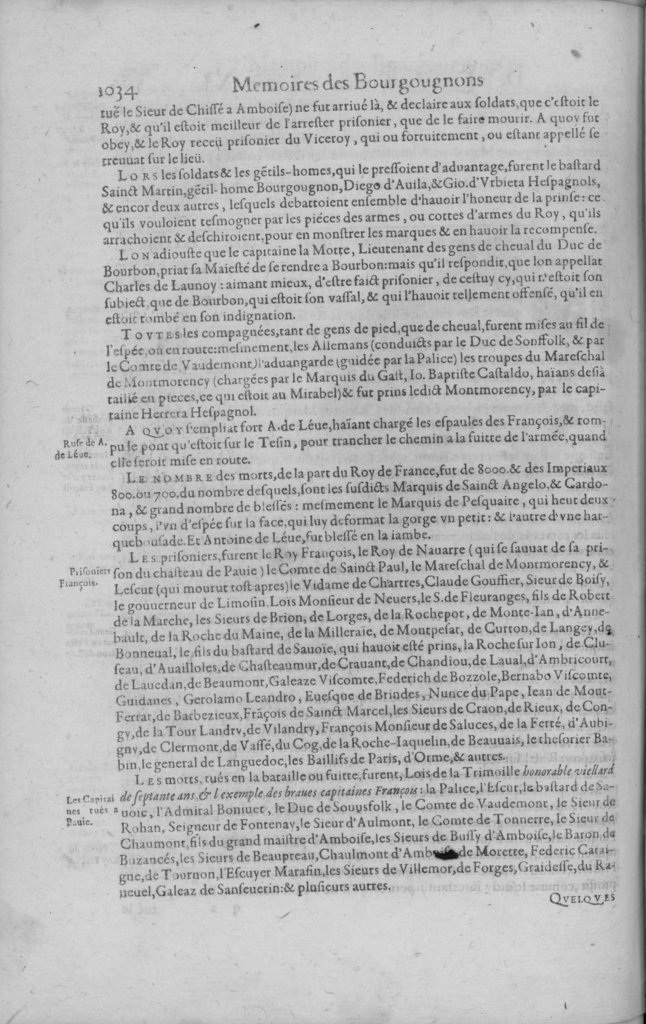 1034 Memoires des Bourgougnons
tué le Sieur de Chissé a Amboise) ne fut arriué là, & declaire aux soldats, que c'estoit le
Roy, & qu'il estoit meilleur de l'arrester prisonier, que de le faire mourir. A quoy fut
obey, & le Roy receu prisonier du Viceroy, qui ou fortuitement, ou estant appellé se
treuuat sur le lieu.
LORS les soldats & les gẽtils-homes, qui le pressoient d'aduantage, furent le bastard
Sainct Martin, gẽtil-home Bourgougnon, Diego d'Auila, & Gio. d'Vrbieta Hespagnols,
& encor deux autres, lesquels debattoient ensemble d'hauoir l'honeur de la prinse: ce
qu'ils vouloient tesmogner par les piéces des armes, ou cottes d'armes du Roy, qu'ils
arrachoient & deschiroient, pour en monstrer les marques & en hauoir la recompense.
LON adiouste que le capitaine la Motte, Lieutenant des gens de cheual du Duc de
Bourbon, priat sa Maiesté de se rendre a Bourbon: mais qu'il respondit, que lon appellat
Charles de Launoy: aimant mieux, d'estre faict prisonier, de cestuy cy, qui n'estoit son
subiect, que de Bourbon, qui estoit son vassal, & qui l'hauoit tellement offensé, qu'il en
estoit tombé en son indignation.
TOVTES les compagnées, tant de gens de pied, que de cheual, furent mises au fil de
l'espée, ou en route: mesmement, les Allemans (conduicts par le Duc de Sonffolk, & par
le Comte de Vaudemont) l'aduangarde (guidée par la Palice) les troupes du Mareschal
de Montmorency (chargées par le Marquis du Gast, Io. Baptiste Castaldo, haians desia
taillé en pieces, ce qui estoit au Mirabel) & fut prins ledict Montmorency, par le capi-
taine Herrera Hespagnol.
A QVOY s'empliat fort A. de Léue, haïant chargé les espaules des François, & rom-
Ruse de A.
de Léue.
pu le pont qu'estoit sur le Tesin, pour trancher le chemin a la fuitte de l'armée, quand
elle seroit mise en route.
LE NOMBRE des morts, de la part du Roy de France, fut de 8000. & des Imperiaux
800. ou 700. du nombre desquels, sont les susdicts Marquis de Sainct Angelo, & Cardo-
na, & grand nombre de blessés: mesmement le Marquis de Pesquaire, qui heut deux
coups, l'vn d'espée sur la face, qui luy deformat la gorge vn petit: & l'autre d'vne har-
quebousade. Et Antoine de Léue, fut blessé en la iambe.
LES prisoniers, furent le Roy François, le Roy de Nauarre (qui se sauuat de sa pri-
Prisoniers
François.
son du chasteau de Pauie) le Comte de Sainct Paul, le Mareschal de Montmorency, &
Lescut (qui mourut tost apres) le Vidame de Chartres, Claude Gouffier, Sieur de Boisy,
le gouuerneur de Limosin. Loïs Monsieur de Neuers, le S. de Fleuranges, fils de Robert
de la Marche, les Sieurs de Brion, de Lorges, de la Rochepot, de Monte-Ian, d'Anne-
bault, de la Roche du Maine, de la Milleraie, de Montpesat, de Curton, de Langey, de
Bonneual, le fils du bastard de Sauoïe, qui hauoit esté prins, la Roche sur Ion, de Clu-
seau, d'Auailloles, de Chasteaumur, de Crauant, de Chandiou, de Laual, d'Ambricourt,
de Lauedan, de Beaumont, Galeaze Viscomte, Federich de Bozzole, Bernabo Viscomte,
Guidanes, Gerolamo Leandro, Euesque de Brindes, Nunce du Pape, Iean de Mont-
Ferrat, de Barbezieux, Frãçois de Sainct Marcel, les Sieurs de Craon, de Rieux, de Con-
gy, de la Tour Landry, de Vilandry, François Monsieur de Saluces, de la Ferté, d'Aubi-
gny, de Clermont, de Vassé, du Cog, de la Roche-Iaquelin, de Beauuais, le thesorier Ba-
bin, le general de Languedoc, les Baillifs de Paris, d'Orme, & autres.
LES morts, tués en la bataille ou fuitte, furent, Loïs de la Trimoille honorable viellard
Les Capitai
nes tués a
Pauie.
de septante ans, & l'exemple des braues capitaines François: la Palice, l'Escut, le bastard de Sa-
uoie, l'Admiral Boniuet, le Duc de Souusfolk, le Comte de Vaudemont, le Sieur de
Rohan, Seigneur de Fontenay, le Sieur d'Aulmont, le Comte de Tonnerre, le Sieur de
Chaumont, fils du grand maistre d'Amboise, les Sieurs de Bussy d'Amboise, le Baron de
Buzancés, les Sieurs de Beaupreau, Chaulmont d'Amboise de Morette, Federic Catai-
gne, de Tournon, l'Escuyer Marafin, les Sieurs de Villemor, de Forges, Graidesse, du Ra-
neuel, Galeaz de Sanseuerin: & plusieurs autres.
QVELQVES